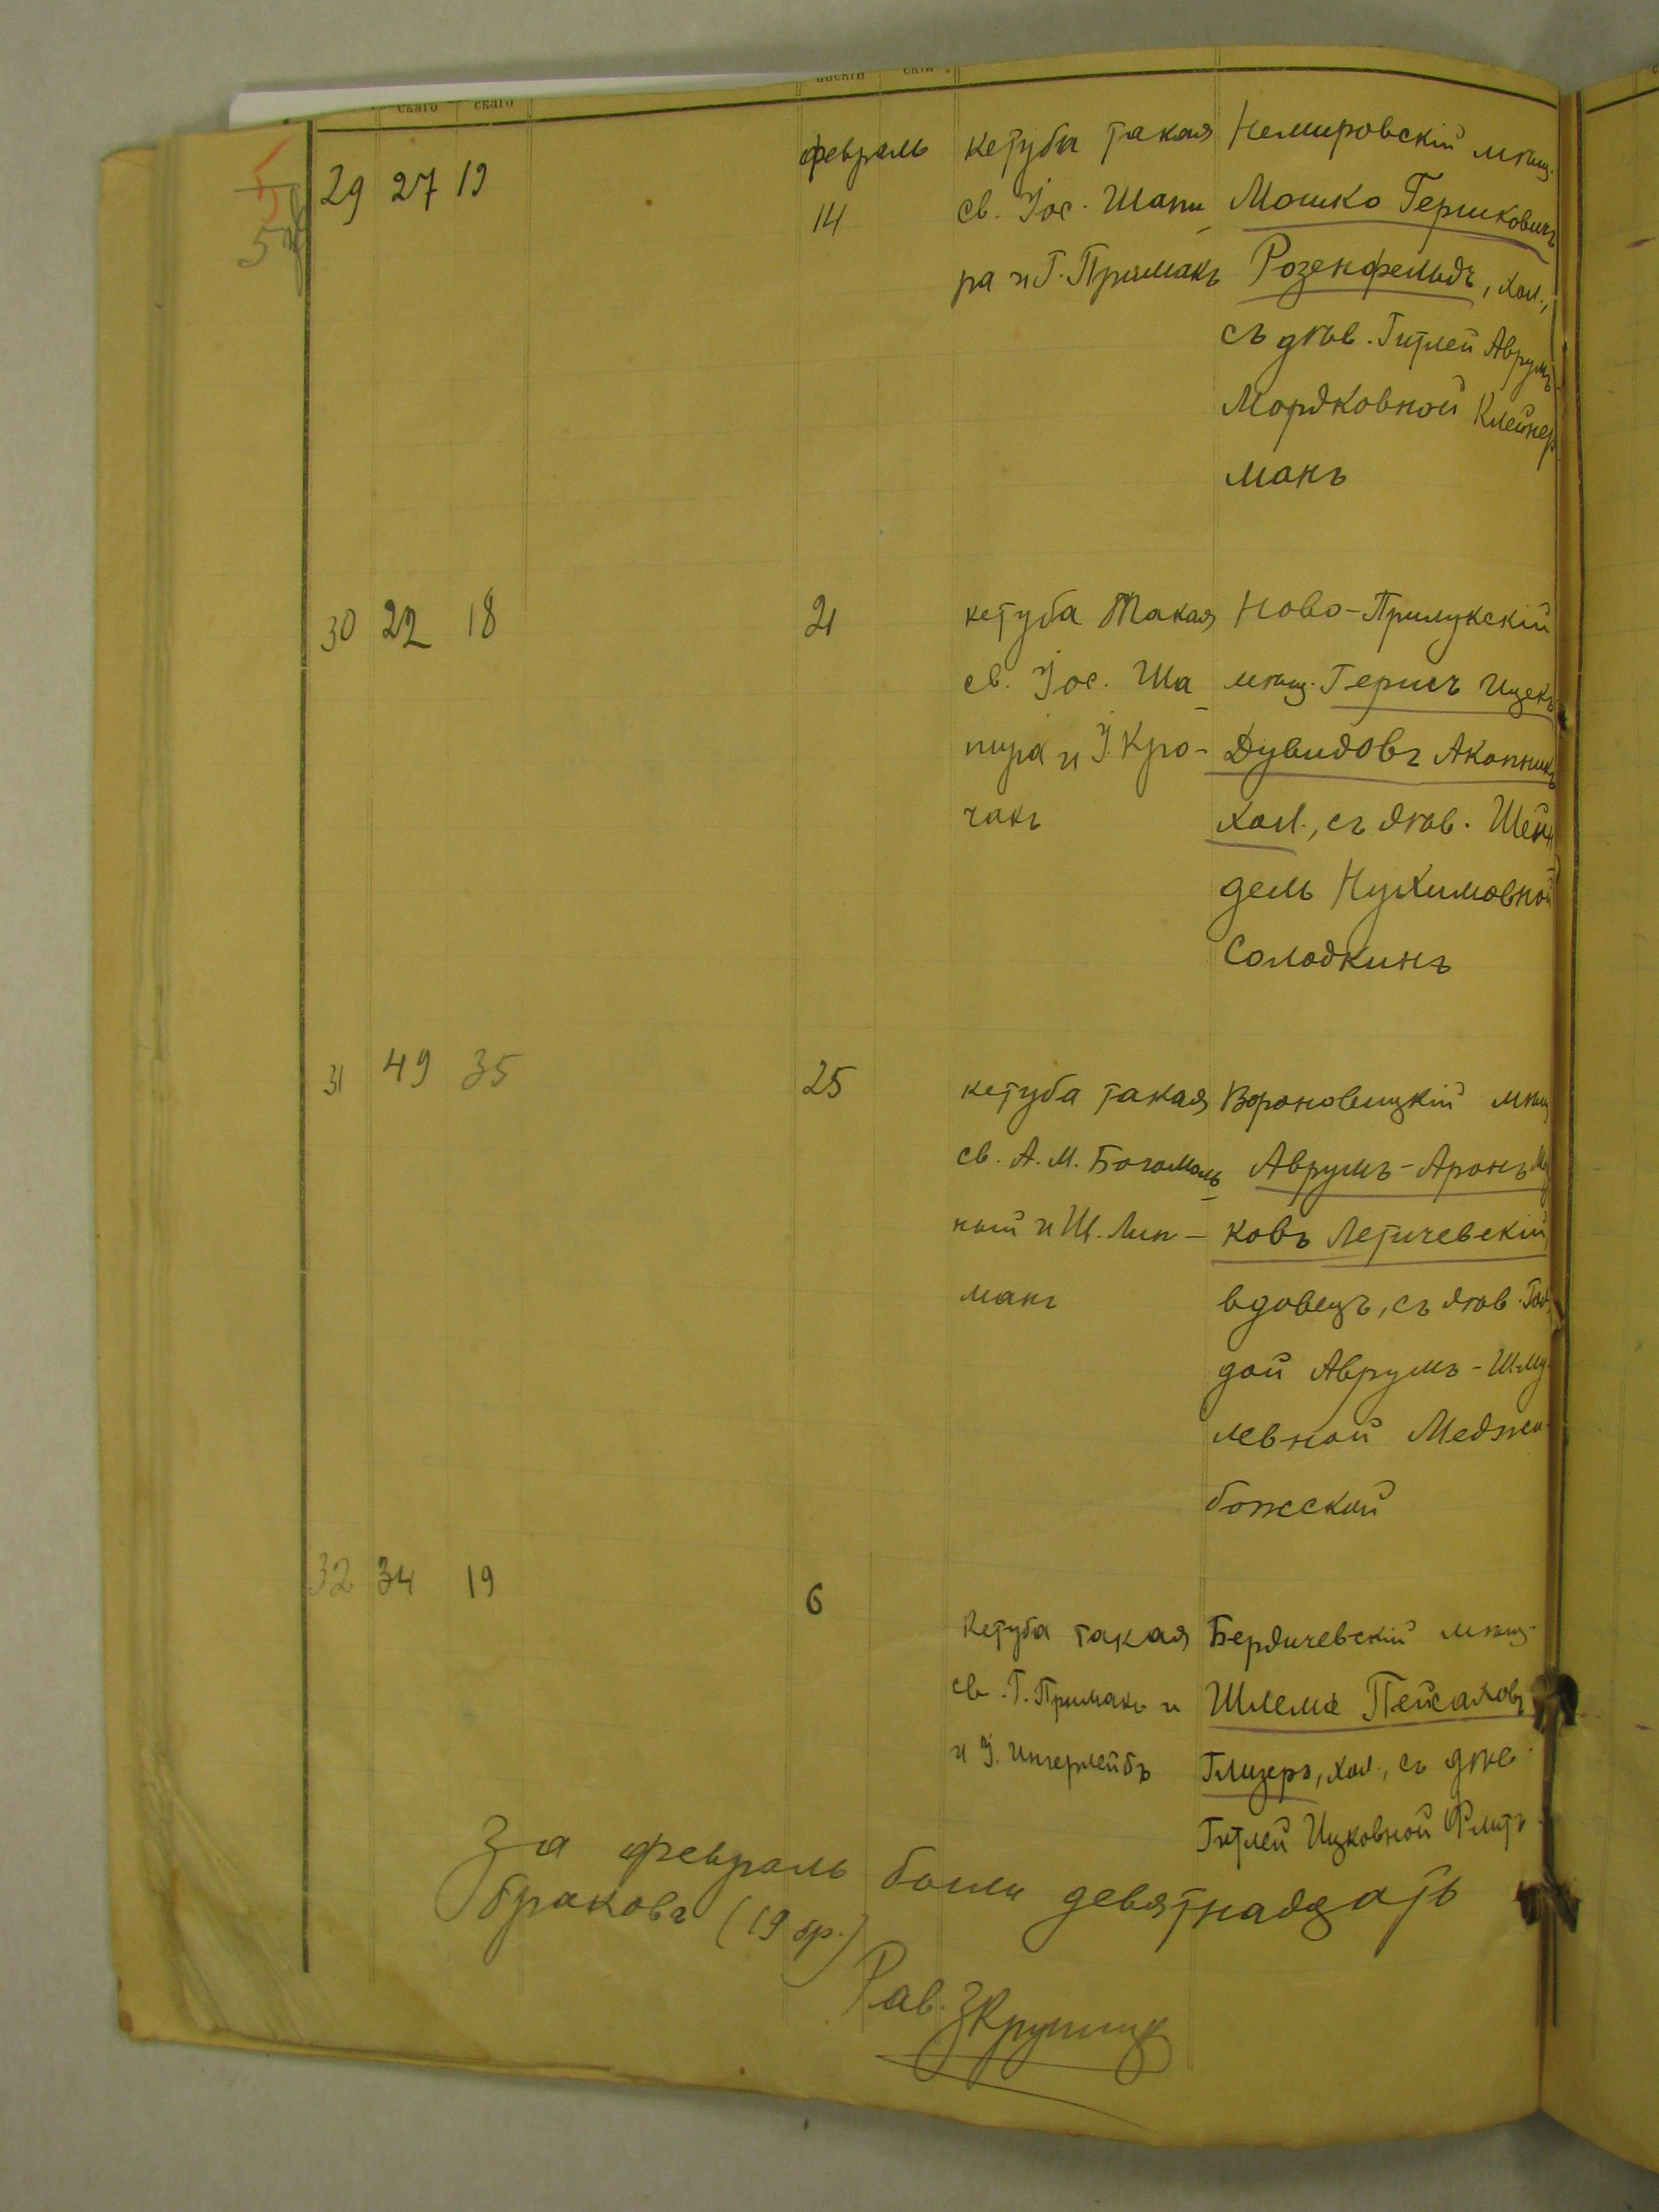 скаго скаго
29 27 19 февраль 14
кетуба такая
св. Іос. Шапи
ра и Г. Примакъ
Немировскій мѣщ.
Мошко Гершковичъ
Розенфельдъ, хол.,
съ дѣв. Гитлей Аврумъ
Мордковной Клейнер
манъ
30 22 18 21
кетуба такая
св. Іос. Ша
пира и І. Кро-
чакъ
Ново-Прилукскій
мѣщ. Гершъ Ицекъ
Дувидовъ Акопникъ
хол., съ дѣв. Шейн
дель Нухимовной
Солодкинъ
31 49 35 25
кетуба такая
св. А. М. Богомоль
ный и Ш. Лип-
манъ
Вороновицкій мѣщ
Аврумъ-Аронъ
ковъ Летичевскій
вдовецъ, съ дѣв. Гол
дой Аврумъ-Шму
левной Меджи
божской
32 34 19 6
Кетуба такая
св. Г. Примакъ и
и І. Ингерлейбъ
Бердичевскій мѣщ.
Шлема Пейсаховъ
Глизеръ, хол., съ дѣв.
Гитлей Ицковной
За февраль были девятнадцать
браковъ (19 бр.)
Рав. ЗКрупник